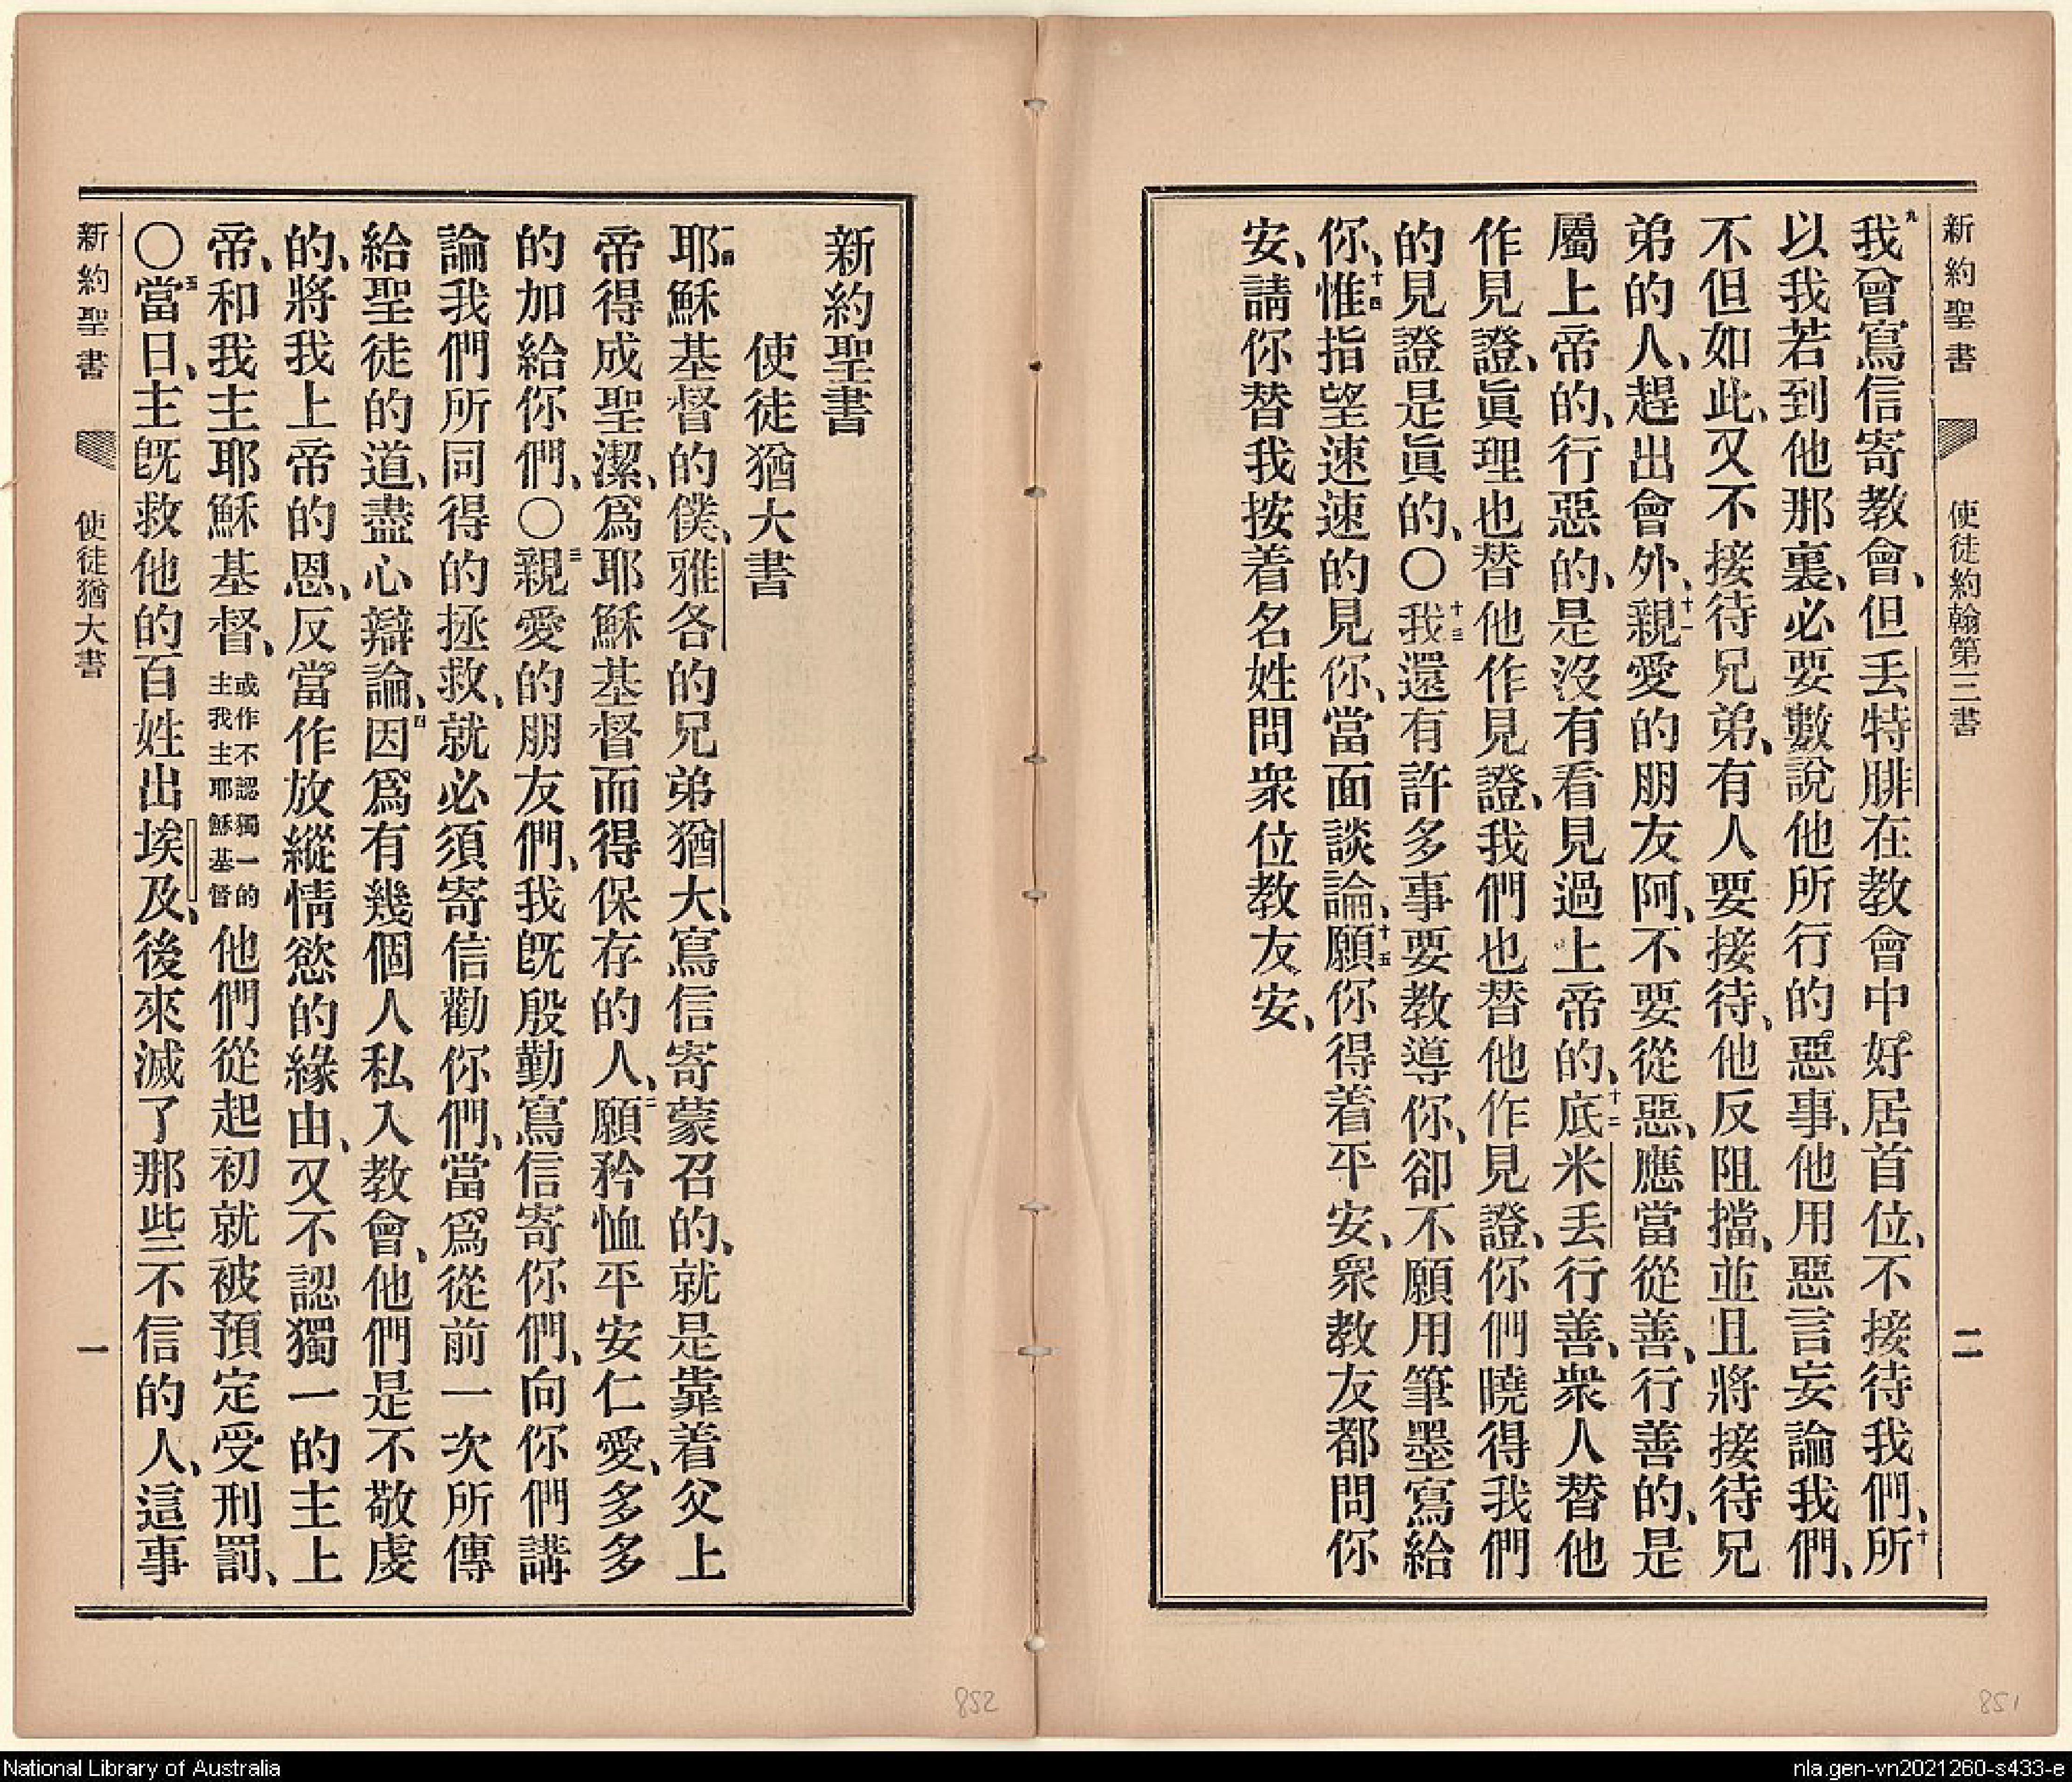 新約聖書 使徒約翰第三書 二
九我曾寫信寄教會、但丢特腓在教會中好居首位、不接待我們、十所
以我若到他那裏、必要數說他所行的惡事、他用惡言妄論我們、
不但如此、又不接待兄弟、有人要接待、他反阻擋、並且將接待兄
弟的人、趕出會外、十一親愛的朋友阿、不要從惡、應當從善、行善的、是
屬上帝的、行惡的、是沒有看見過上帝的、十二底米丢行善、衆人替他
作見證、眞理也替他作見證、我們也替他作見證、你們曉得我們
的見證是眞的、〇十三我還有許多事要教導你、卻不願用筆墨寫給
你、十四惟指望速速的見你、當面談論、十五願你得着平安、眾教友都問你
安、請你替我按着名姓問衆位教友安、
851
新約聖書
使徒猶大書
一耶穌基督的僕、雅各的兄弟猶大、寫信寄蒙召的、就是靠着父上
帝得成聖潔、爲耶穌基督而得保存的人、二願矜恤平安仁愛、多多
的加給你們、〇三親愛的朋友們、我旣殷勤寫信寄你們、向你們講
論我們所同得的拯救、就必須寄信勸你們、當爲從前一次所傳
給聖徒的道、盡心辯論、四因爲有幾個人私入教會、他們是不敬虔
的、將我上帝的恩、反當作放縱情慾的緣由、又不認獨一的主上
帝、和我主耶穌基督、或作不認獨一的主我主耶穌基督他們從起初就被預定受刑罰、
〇五當日、主旣救他的百姓出埃及、後來滅了那些不信的人、這事
新約聖書 使徒猶大書 一
852
National Library of Australia
nla.gen-vn2021260-s433-e